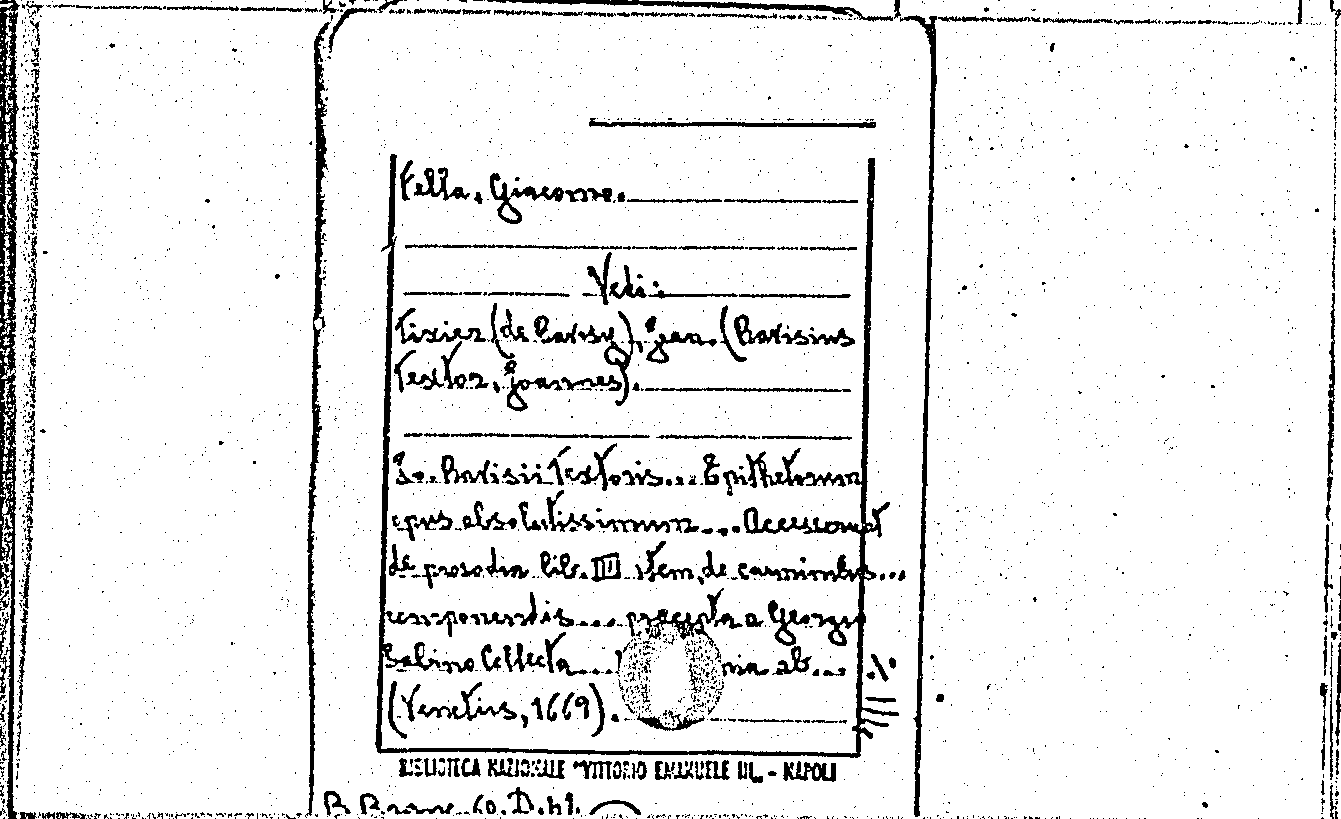 Fella, Giacomo.
Vedi:
Tixier (de Ravisy), Jean. (Ravisius
Textor, Joannes).
Jo. Ravisii Textoris... Epithetorum
opus absolutissimum... Accesserunt
de prosodia lib. IIII item, de carminibus...
componendis... præcepta a Georgio
Sabino Collecta... ab...
(Venetiis, 1669).
BIBLIOTECA NAZIONALE "VITTORIO EMANUELE III„ - NAPOLI
B. Branc. 60. D.